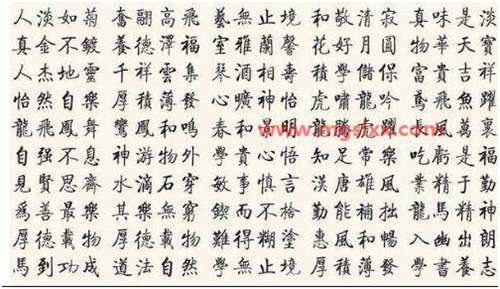 人淡如菊 奮翮高飛 藝無止境 和敬清寂 真味是淡
真金不鍍 養德澤福 室雅蘭馨 花好月圓 物華天寶
人杰地靈 千祥雲集 琴酒相壽 積學儲保 富貴吉祥
怡然自樂 厚積薄發 心曠神怡 虎嘯龍吟 鳶飛魚躍
龍飛鳳舞 鸞鳳和鳴 春和景明 龍騰虎躍 風萬裏
自強不息 神游物外 學貴心悟 知足常樂 吃虧是福
見賢思齊 水滴石穿 敏事慎言 漢唐雄風 業精于勤
爲善最樂 其樂無窮 鍥而不捨 勤能補拙 龍馬精神
厚德載物 厚德載物 難得糊塗 惠風和暢 入幽出朗
馬到功成 道法自然 學無止境 厚積薄發 學書養志